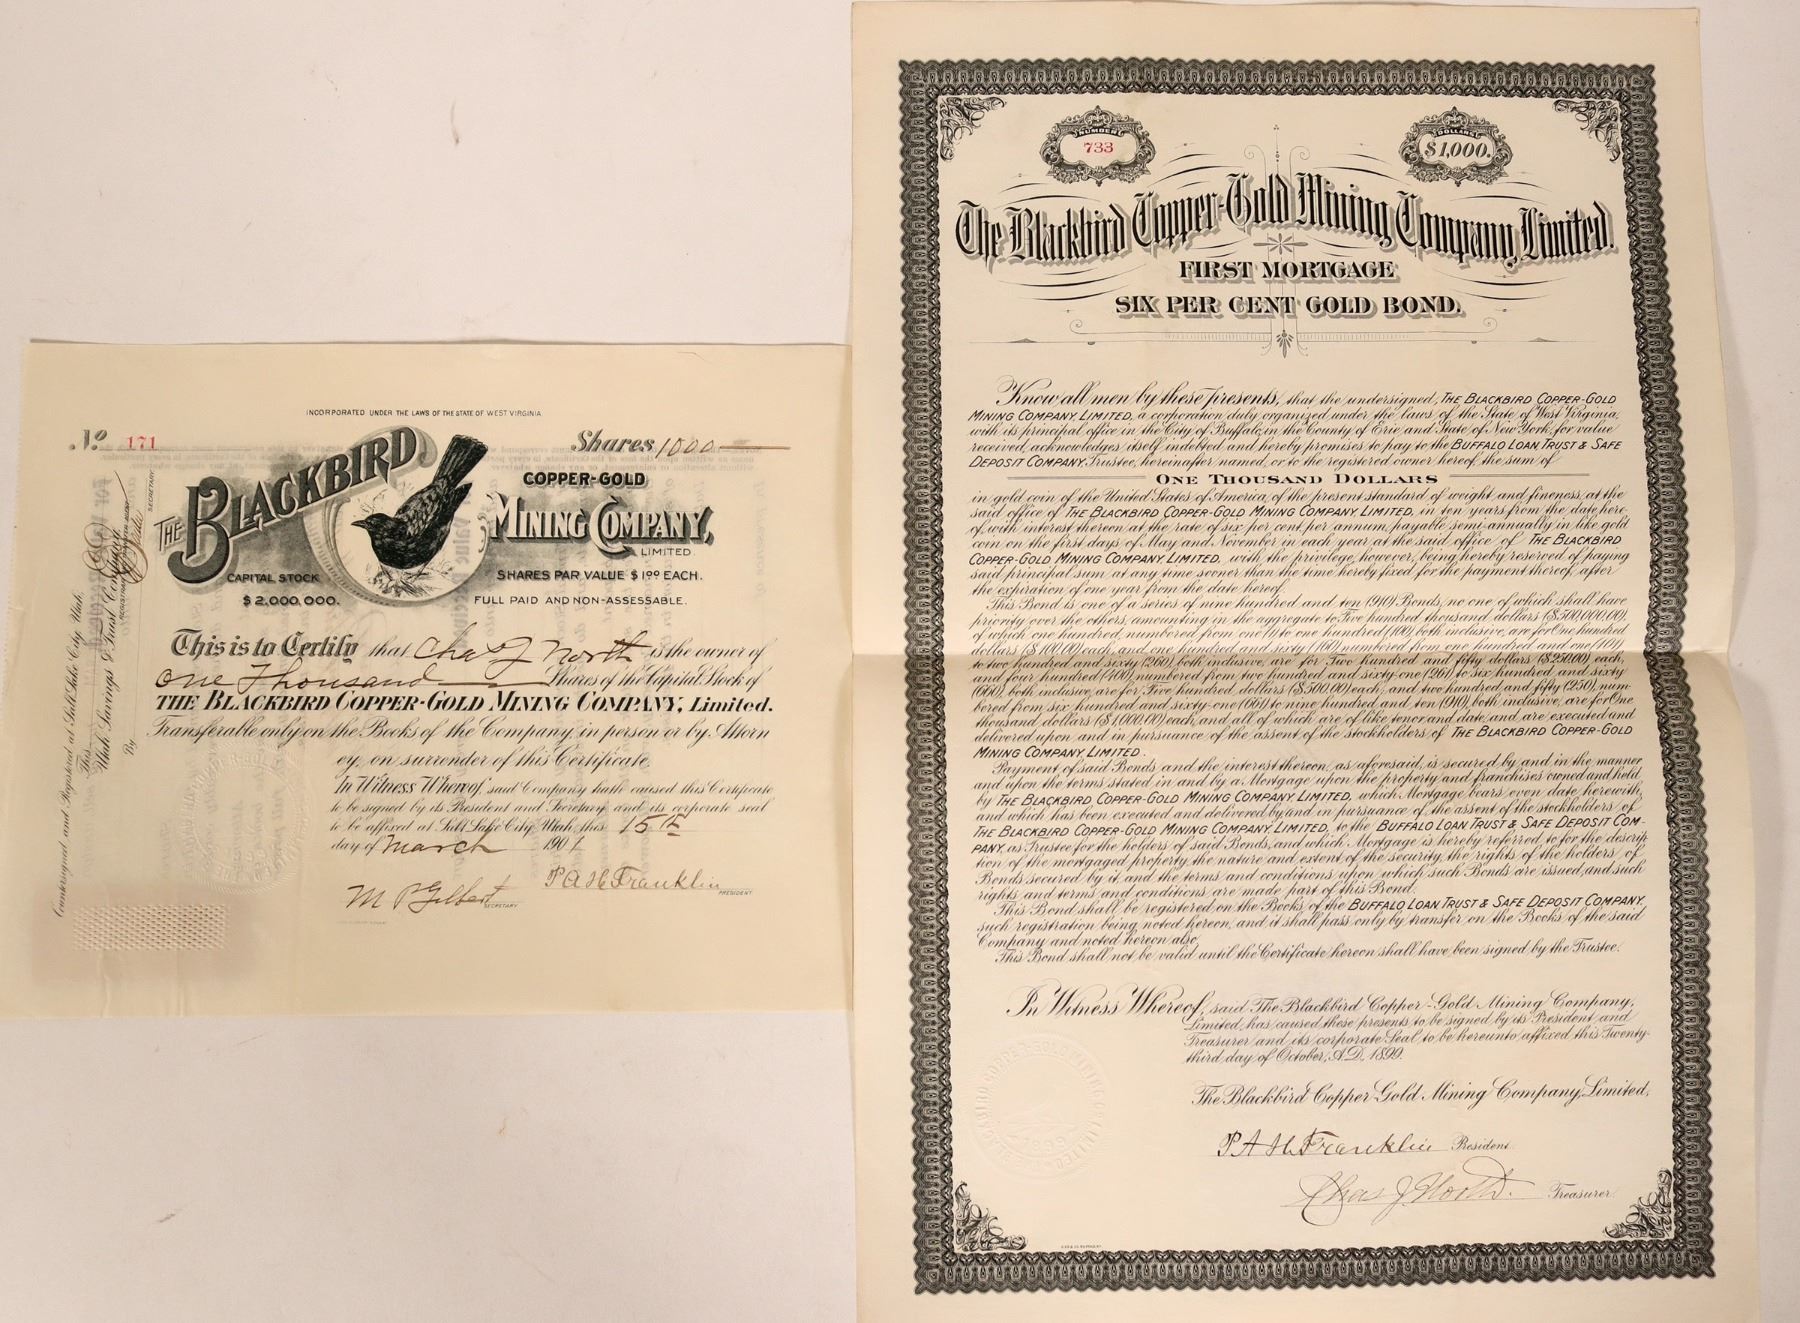 INCORPORATED UNDER THE LAWS OF THE STATE OF WEST VIRGINIA
No. 171
Shares 1000
THE BLACKBIRD
COPPER-GOLD
MINING COMPANY,
LIMITED
CAPITAL STOCK
$2,000,000.
SHARES PAR VALUE $1.00 EACH.
FULL PAID AND NON-ASSESSABLE.
This is to Certify that Chas J North is the owner of
one Thousand Shares of the Capital Stock of
THE BLACKBIRD COPPER-GOLD MINING COMPANY, Limited.
Transferable only on the Books of the Company in person or by Attorn
ey, on surrender of this Certificate.
In Witness Whereof, said Company hath caused this Certificate
to be signed by its President and Secretary and its corporate seal
to be affixed at Salt Lake City, Utah, this 15th
day of March 1901
M P Gilbert SECRETARY
P A H Franklin PRESIDENT
Countersigned and Registered at Salt Lake City, Utah,
This
Utah Savings & Trust Company
REGISTRAR
By
SECRETARY
NUMBER
733
DOLLARS
$1,000.
The Blackbird Copper-Gold Mining Company, Limited.
FIRST MORTGAGE
SIX PER CENT GOLD BOND.
Know all men by these presents, that the undersigned, THE BLACKBIRD COPPER-GOLD
MINING COMPANY, LIMITED, a corporation duly organized under the laws of the State of West Virginia,
with its principal office in the City of Buffalo, in the County of Erie and State of New York, for value
received, acknowledges itself indebted and hereby promises to pay to the BUFFALO LOAN, TRUST & SAFE
DEPOSIT COMPANY, Trustee, hereinafter named, or to the registered owner hereof, the sum of
ONE THOUSAND DOLLARS
in gold coin of the United States of America, of the present standard of weight and fineness, at the
said office of THE BLACKBIRD COPPER-GOLD MINING COMPANY, LIMITED, in ten years from the date here-
of, with interest thereon at the rate of six per cent. per annum, payable semi-annually in like gold
coin on the first days of May and November in each year at the said office of THE BLACKBIRD
COPPER-GOLD MINING COMPANY, LIMITED, with the privilege, however, being hereby reserved of paying
said principal sum at any time sooner than the time hereby fixed for the payment thereof, after
the expiration of one year from the date hereof.
This Bond is one of a series of nine hundred and ten (910) Bonds, no one of which shall have
priority over the others, amounting in the aggregate to Five hundred thousand dollars ($500,000.00),
of which one hundred, numbered from one (1) to one hundred (100), both inclusive, are for One hundred
dollars ($100.00) each, and one hundred and sixty (160) numbered from one hundred and one (101)
to two hundred and sixty (260), both inclusive, are for Two hundred and fifty dollars ($250.00) each,
and four hundred (400) numbered from two hundred and sixty-one (261) to six hundred and sixty
(660), both inclusive, are for Five hundred dollars ($500.00) each, and two hundred and fifty (250), num-
bered from six hundred and sixty-one (661) to nine hundred and ten (910), both inclusive, are for One
thousand dollars ($1,000.00) each, and all of which are of like tenor and date and are executed and
delivered upon and in pursuance of the assent of the stockholders of THE BLACKBIRD COPPER-GOLD
MINING COMPANY, LIMITED.
Payment of said Bonds and the interest thereon, as aforesaid, is secured by and in the manner
and upon the terms stated in and by a Mortgage upon the property and franchises owned and held
by THE BLACKBIRD COPPER-GOLD MINING COMPANY, LIMITED, which Mortgage bears even date herewith,
and which has been executed and delivered by and in pursuance of the assent of the stockholders of
THE BLACKBIRD COPPER-GOLD MINING COMPANY, LIMITED, to the BUFFALO LOAN, TRUST & SAFE DEPOSIT COM-
PANY, as Trustee for the holders of said Bonds, and which Mortgage is hereby referred to for the descrip-
tion of the mortgaged property, the nature and extent of the security, the rights of the holders of
Bonds secured by it, and the terms and conditions upon which such Bonds are issued, and such
rights and terms and conditions are made part of this Bond.
This Bond shall be registered on the Books of the BUFFALO LOAN, TRUST & SAFE DEPOSIT COMPANY,
such registration being noted hereon, and it shall pass only by transfer on the Books of the said
Company and noted hereon also.
This Bond shall not be valid until the Certificate hereon shall have been signed by the Trustee.
In Witness Whereof, said The Blackbird Copper-Gold Mining Company,
Limited, has caused these presents to be signed by its President and
Treasurer and its corporate Seal to be hereunto affixed this Twenty-
third day of October, A.D. 1899.
The Blackbird Copper-Gold Mining Company, Limited,
P A H Franklin President.
Chas J. North. Treasurer.